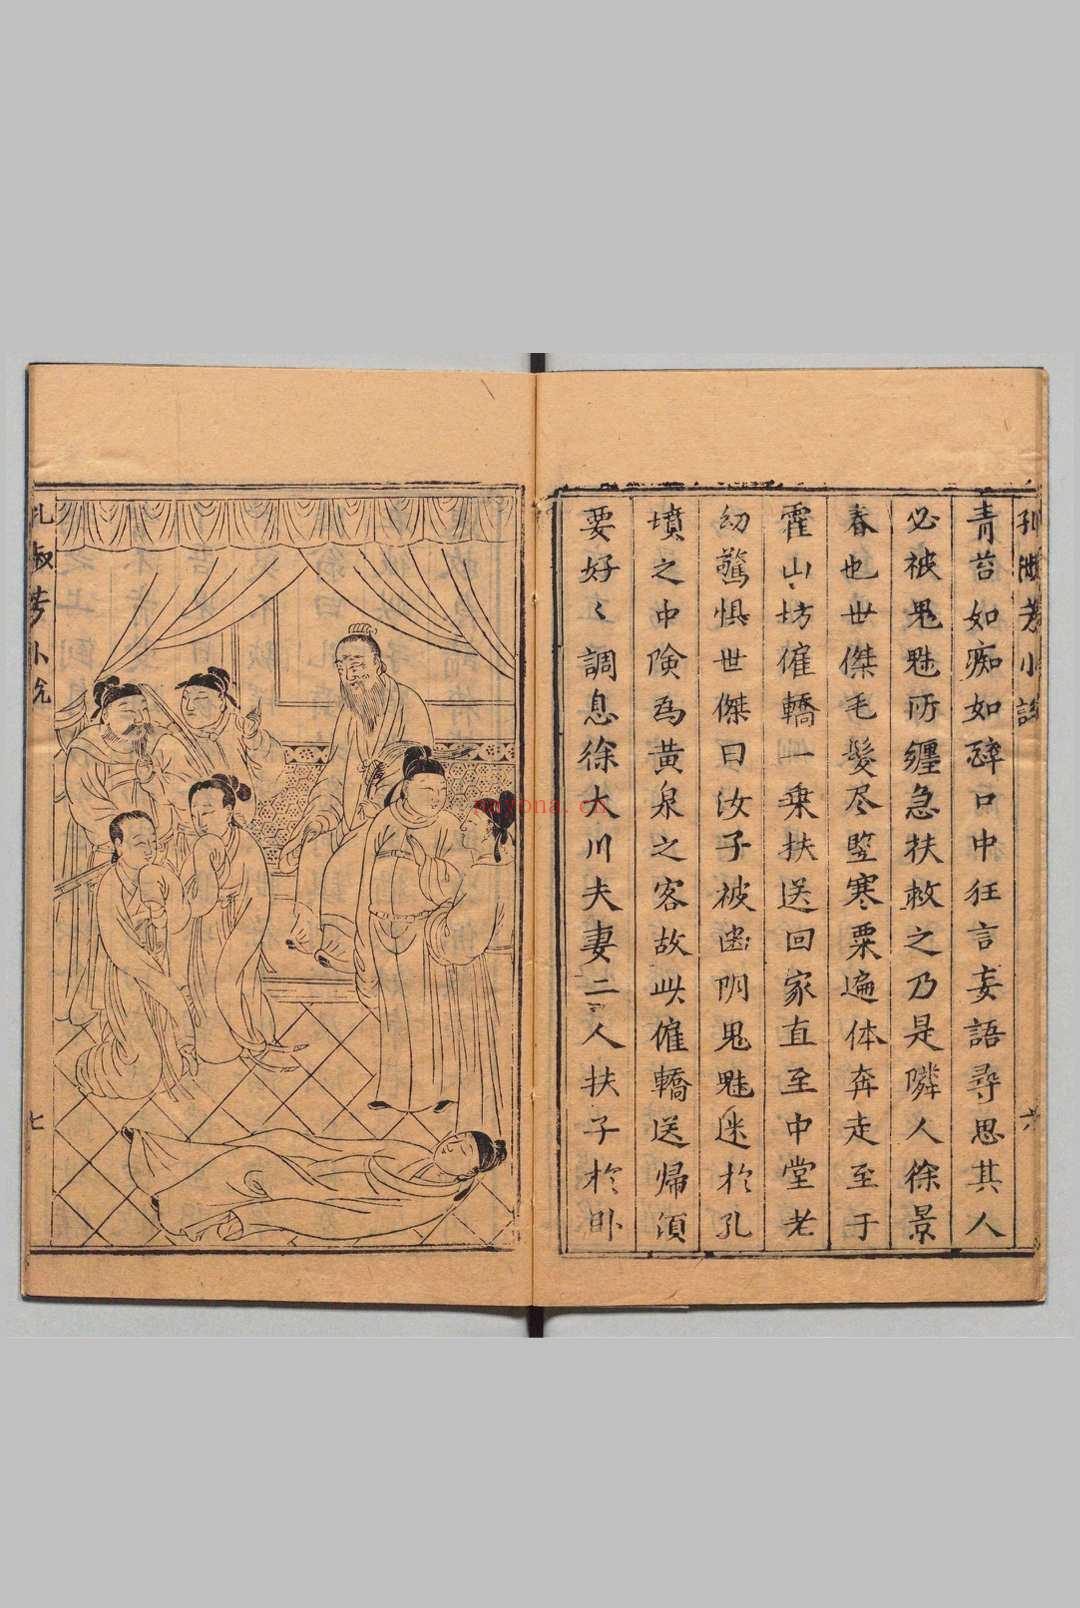 孔淑芳小說
青苔如痴如醉口中狂言妄語尋思其人
必被鬼魅所纏急扶救之乃是隣人徐景
春也世傑毛髮尽竪寒粟遍体奔走至于
霍山〻坊僱轎一乗扶送回家直至中堂老
幼驚惧世傑曰汝子被幽阴鬼魅迷扵孔
墳之中険為黄泉之客故此僱轎送帰須
要好〻調息徐大川夫妻二人扶子扵卧
六
孔淑芳小說
七